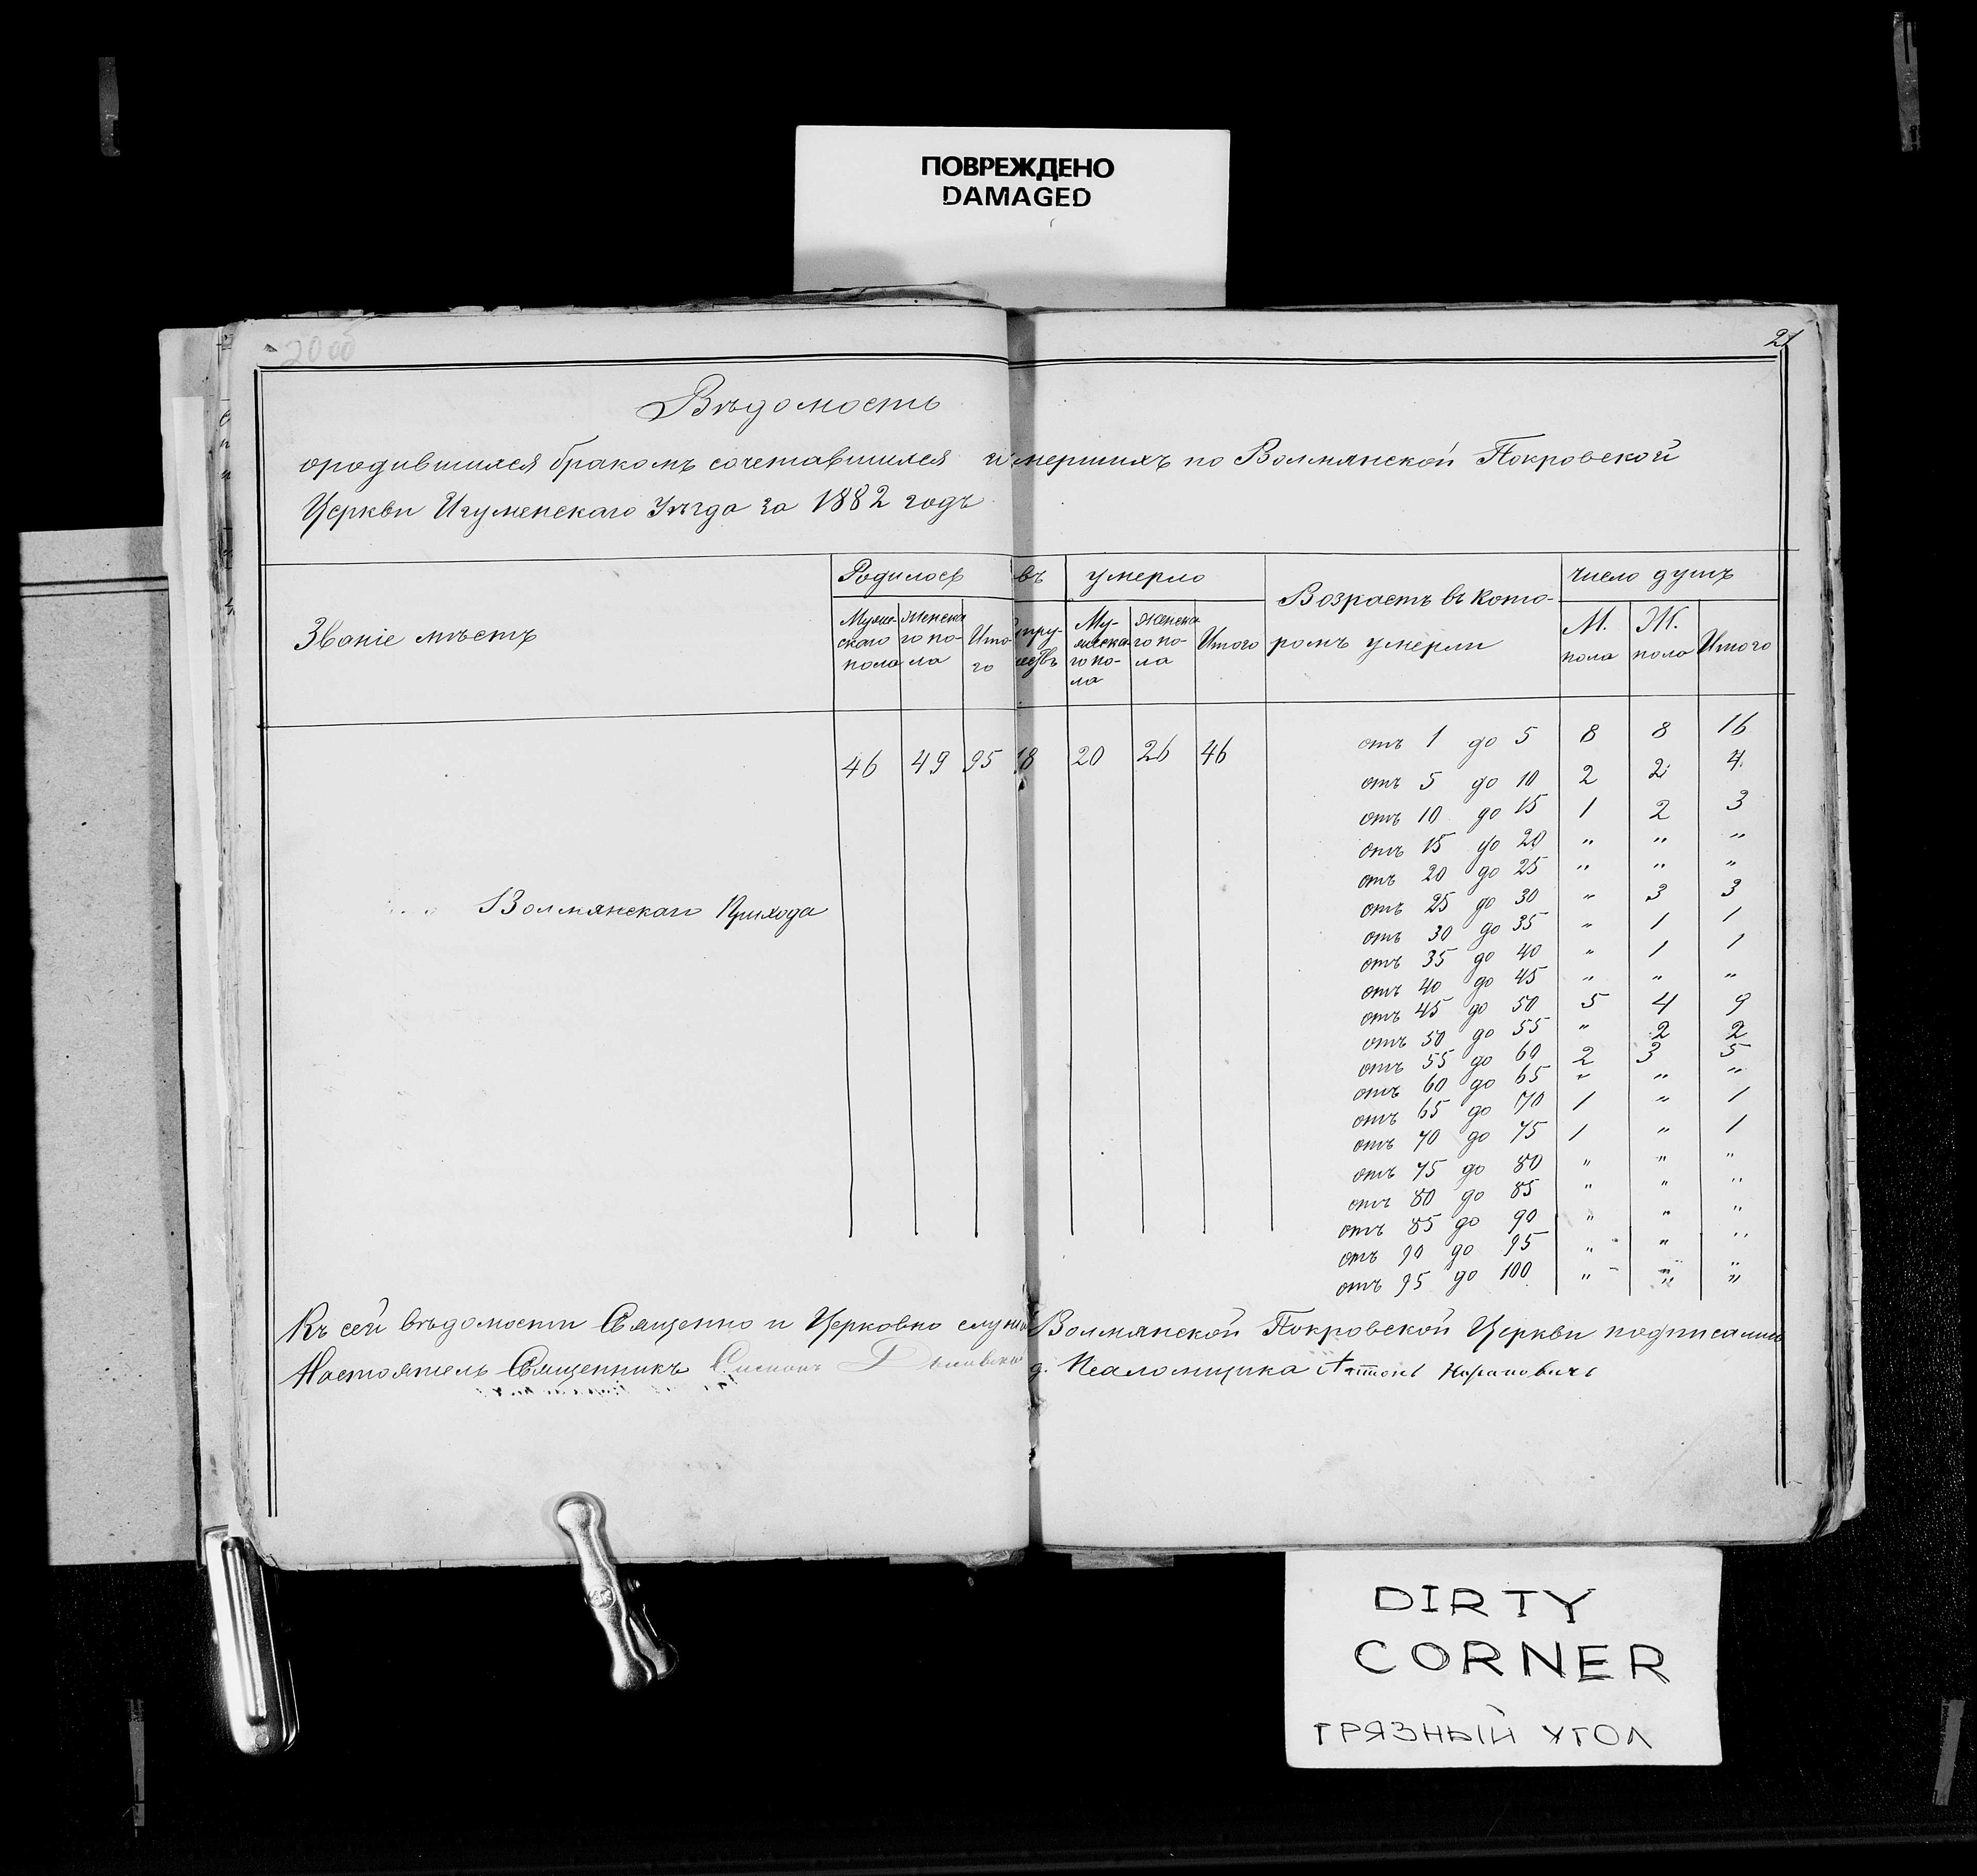 ПОВРЕЖДЕНО
DAMAGED
20 об
21
Вѣдомость
ородившихся бракомъ сочетавшихся и мершихъ по Волмянской Покровской
Церкви Игуменскаго Уѣзда за 1882 годъ
Званіе мѣстъ
Родилось
Мужескаго пола
Женскаго пола
Итого
въ
умерло
Мужескаго пола
Женскаго пола
Итого
Возрастъ въ которомъ умерли
число душъ
М. пола
Ж. пола
Итого
Волмянскаго Прихода
46 49 95 18 20 26 46
отъ 1 до 5 8 8 16
отъ 5 до 10 2 2 4
отъ 10 до 15 1 2 3
отъ 15 до 20 " " "
отъ 20 до 25 " " "
отъ 25 до 30 " 3 3
отъ 30 до 35 " 1 1
отъ 35 до 40 " 1 1
отъ 40 до 45 " " "
отъ 45 до 50 5 4 9
отъ 50 до 55 " 2 2
отъ 55 до 60 2 3 5
отъ 60 до 65 " " "
отъ 65 до 70 1 " 1
отъ 70 до 75 1 " 1
отъ 75 до 80 " " "
отъ 80 до 85 " " "
отъ 85 до 90 " " "
отъ 90 до 95 " " "
отъ 95 до 100 " " "
Къ сей вѣдомости Священно и Церковно служи Волмянской Покровской Церкви подписались
Настоятель Священникъ Симонъ д. Псаломщика Антонъ
DIRTY
CORNER
ГРЯЗНЫЙ УГОЛ